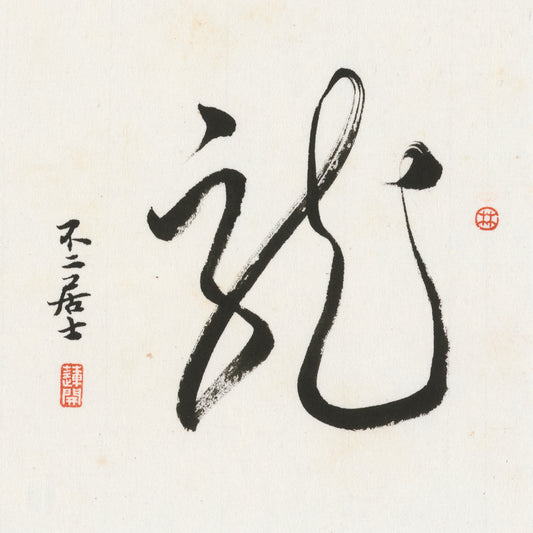 龍
不二居士